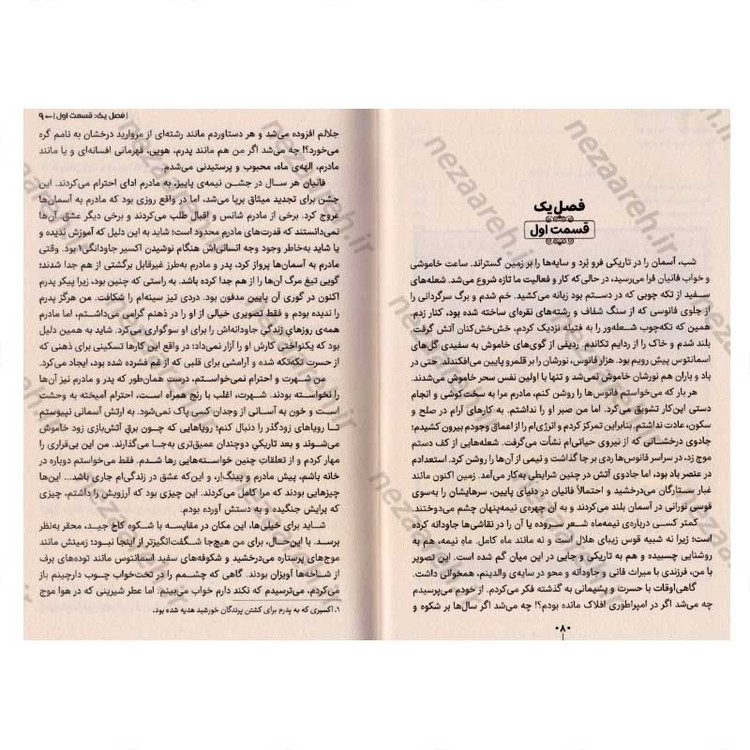 فصل یک
قسمت اول
شب، آسمان را در تاریکی فرو بُرد و سایه‌ها را بر زمین گستراند. ساعت خاموشی
و خواب فانیان فرا می‌رسید، در حالی که کار و فعالیت ما تازه شروع می‌شد. شعله‌های
سفید از تکه چوبی که در دستم بود زبانه می‌کشید. خم شدم و برگ سرگردانی را
از جلوی فانوسی که از سنگ شفاف و رشته‌های نقره‌ای ساخته شده بود، کنار زدم.
همین که تکه‌چوب شعله‌ور را به فتیله نزدیک کردم، خش‌خش‌کنان آتش گرفت.
بلند شدم و خاک را از ردایم تکاندم. ردیفی از گوی‌های خاموش به سفیدی گل‌های
اسمانتوس پیش رویم بود. هزار فانوس، نورشان را بر قلمرو پایین می‌افکندند. حتی در
باد و باران هم نورشان خاموش نمی‌شد و تنها با اولین نفس سحر خاموش می‌شدند.
هر بار که می‌خواستم فانوس‌ها را روشن کنم، مادرم مرا به سخت‌کوشی و انجام
دستی این‌کار تشویق می‌کرد. اما من صبر او را نداشتم. به کارهای آرام در صلح و
سکون، عادت نداشتم. بنابراین تمرکز کردم و انرژی‌ام را از اعماق وجودم بیرون کشیدم؛
جادوی درخشانی که از نیروی حیاتی‌ام نشأت می‌گرفت. شعله‌هایی از کف دستم
موج زد، در سراسر فانوس‌ها ردی بر جا گذاشت و نیمی از آن‌ها را روشن کرد. استعدادم
در عنصر باد بود، اما جادوی آتش در چنین شرایطی به‌کار می‌آمد. زمین اکنون مانند
غبار ستارگان می‌درخشید و احتمالاً فانیان در دنیای پایین، سرهایشان را به‌سوی
قوسی نورانی در آسمان بلند می‌کردند و به آن چهره‌ی نیمه‌پنهان چشم می‌دوختند.
کمتر کسی درباره‌ی نیمه‌ماه شعر سروده یا آن را در نقاشی‌ها جاودانه کرده
است؛ زیرا نه شبیه قوس زیبای هلال است و نه مانند ماه کامل. ماهِ نیمه، هم به
روشنایی چسبیده و هم به تاریکی و جایی در این میان گم شده است. این تصویر
با من، فرزندی با میراث فانی و جاودانه و محو در سایه‌ی والدینم، همخوانی داشت.
گاهی‌اوقات با حسرت و پشیمانی به گذشته فکر می‌کردم. از خودم می‌پرسیدم
چه می‌شد اگر در امپراطوری افلاک مانده بودم؟! چه می‌شد اگر سال‌ها بر شکوه و
۸۰
| فصل یک: قسمت اول | ۹
جلالم افزوده می‌شد و هر دستاوردم مانند رشته‌ای از مروارید درخشان به نامم گره
می‌خورد؟! چه می‌شد اگر من هم مانند پدرم، هویی، قهرمانی افسانه‌ای و یا مانند
مادرم، الهه‌ی ماه، محبوب و پرستیدنی می‌شدم.
فانیان هر سال در جشن نیمه‌ی پاییز، به مادرم ادای احترام می‌کردند. این
جشن برای تجدید میثاق برپا می‌شد، اما در واقع روزی بود که مادرم به آسمان‌ها
عروج کرد. برخی از مادرم شانس و اقبال طلب می‌کردند و برخی دیگر عشق. آن‌ها
نمی‌دانستند که قدرت‌های مادرم محدود است؛ شاید به این دلیل که آموزش ندیده و
یا شاید به‌خاطر وجود جه انسانی‌اش هنگام نوشیدن اکسیر جاودانگی۱. وقتی
مادرم به آسمان‌ها پرواز کرد، پدر و مادرم به‌طرز غیرقابل برگشتی از هم جدا شدند؛
گویی تیغ مرگ آن‌ها را از هم جدا کرده باشد. به راستی که چنین بود، زیرا پیکر پدرم
اکنون در گوری آن پایین مدفون بود. دردی تیز سینه‌ام را شکافت. من هرگز پدرم
را ندیده بودم و فقط تصویری خیالی از او را در ذهنم گرامی می‌داشتم، اما مادرم
همه‌ی روزهای زندگی جاودانه‌اش را برای او سوگواری می‌کرد. شاید به همین دلیل
بود که یکنواختی کارش او را آزار نمی‌داد؛ در واقع این کارها تسکینی برای ذهنی که
از حسرت تکه‌تکه شده و آرامشی برای قلبی که از غم فشرده شده بود، ایجاد می‌کرد.
من شهرت و احترام نمی‌خواستم، درست همان‌طور که پدر و مادرم نیز آن‌ها
را نخواسته بودند. شهرت، اغلب با رنج همراه است، احترام آمیخته به وحشت
است و خون به آسانی از وجدان کسی پاک نمی‌شود. به ارتش آسمانی نپیوستم
تا رویاهای زودگذر را دنبال کنم؛ رویاهایی که چون برقِ آتش‌بازی زود خاموش
می‌شوند و بعد تاریکیِ دوچندان عمیق‌تری به‌جا می‌گذارند. من این بی‌قراری را
مهار کردم و از تعلقاتِ چنین خواسته‌هایی رها شدم. فقط می‌خواستم دوباره در
خانه باشم، پیش مادرم و پینگ‌ار، و این‌که عشق در زندگی‌ام جاری باشد... این‌ها
چیزهایی بودند که مرا کامل می‌کردند. این چیزی بود که آرزویش را داشتم، چیزی
که برایش جنگیده و به دستش آورده بودم.
شاید برای خیلی‌ها، این مکان در مقایسه با شکوه کاخ جید، محقر به‌نظر
برسد. با این‌حال، برای من هیچ‌جا شگفت‌انگیزتر از اینجا نبود؛ زمینش مانند
موج‌های پرستاره می‌درخشید و شکوفه‌های سفید اسمانتوس مانند توده‌های برف
از شاخه‌ها آویزان بودند. گاهی که چشمم را در تخت‌خواب چوب دارچینم باز
می‌کردم، می‌ترسیدم که نکند دارم خواب می‌بینم. اما عطر شیرینی که در هوا موج
۱. اکسیری که به پدرم برای کشتن پرندگان خورشید هدیه شده بود.
nezaareh.ir